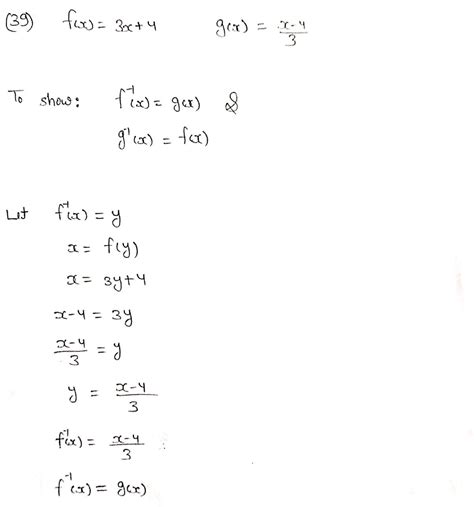 (39) f(x) = 3x+4 g(x) = x-4/3
To show: f⁻¹(x) = g(x) &
g⁻¹(x) = f(x)
Let f⁻¹(x) = y
x = f(y)
x = 3y+4
x-4 = 3y
x-4/3 = y
y = x-4/3
f⁻¹(x) = x-4/3
f⁻¹(x) = g(x)